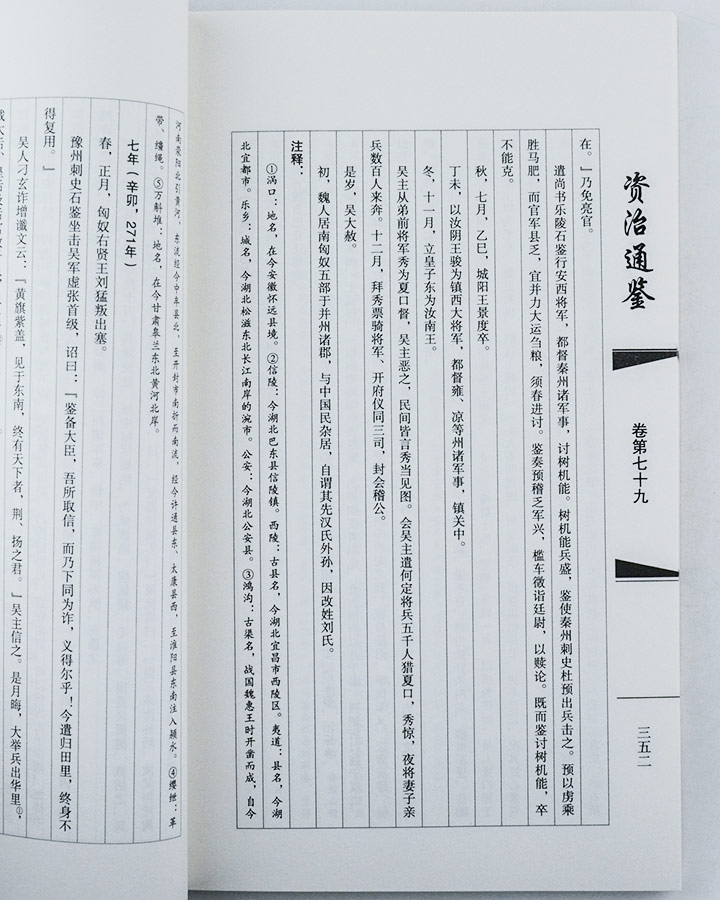 资治通鉴
卷第七十九
三五二
在。』乃免亮官。
遣尚书乐陵石鉴行安西将军，都督秦州诸军事，讨树机能。树机能兵盛，鉴使秦州刺史杜预出兵击之。预以虏乘
胜马肥，而官军县乏，宜并力大运刍粮，须春进讨。鉴奏预稽乏军兴，槛车徵诣廷尉，以赎论。既而鉴讨树机能，卒
不能克。
秋，七月，乙巳，城阳王景度卒。
丁未，以汝阴王骏为镇西大将军，都督雍、凉等州诸军事，镇关中。
冬，十一月，立皇子东为汝南王。
吴主从弟前将军秀为夏口督，吴主恶之，民间皆言秀当见图。会吴主遣何定将兵五千人猎夏口，秀惊，夜将妻子亲
兵数百人来奔。十二月，拜秀票骑将军、开府仪同三司，封会稽公。
是岁，吴大赦。
初，魏人居南匈奴五部于并州诸郡，与中国民杂居，自谓其先汉氏外孙，因改姓刘氏。
注释：
①涡口：地名，在今安徽怀远县境。②信陵：今湖北巴东县信陵镇。西陵：古县名，今湖北宜昌市西陵区。夷道：县名，今湖
北宜都市。乐乡：城名，今湖北松滋东北长江南岸的涴市。公安：今湖北公安县。③鸿沟：古渠名，战国魏惠王时开凿而成，自今
河南荥阳北引黄河，东流经今中牟县北，至开封市南折而南流，经今许通县东、太康县西，至淮阳县东南注入颍水。④缨绁：革
带、缰绳。⑤万斛堆：地名，在今甘肃皋兰东北黄河北岸。
七年（辛卯，271年）
春，正月，匈奴右贤王刘猛叛出塞。
豫州刺史石鉴坐击吴军虚张首级，诏曰：『鉴备大臣，吾所取信，而乃下同为诈，义得尔乎！今遣归田里，终身不
得复用。』
吴人刁玄诈增谶文云：『黄旗紫盖，见于东南，终有天下者，荆、扬之君。』吴主信之。是月晦，大举兵出华里①，